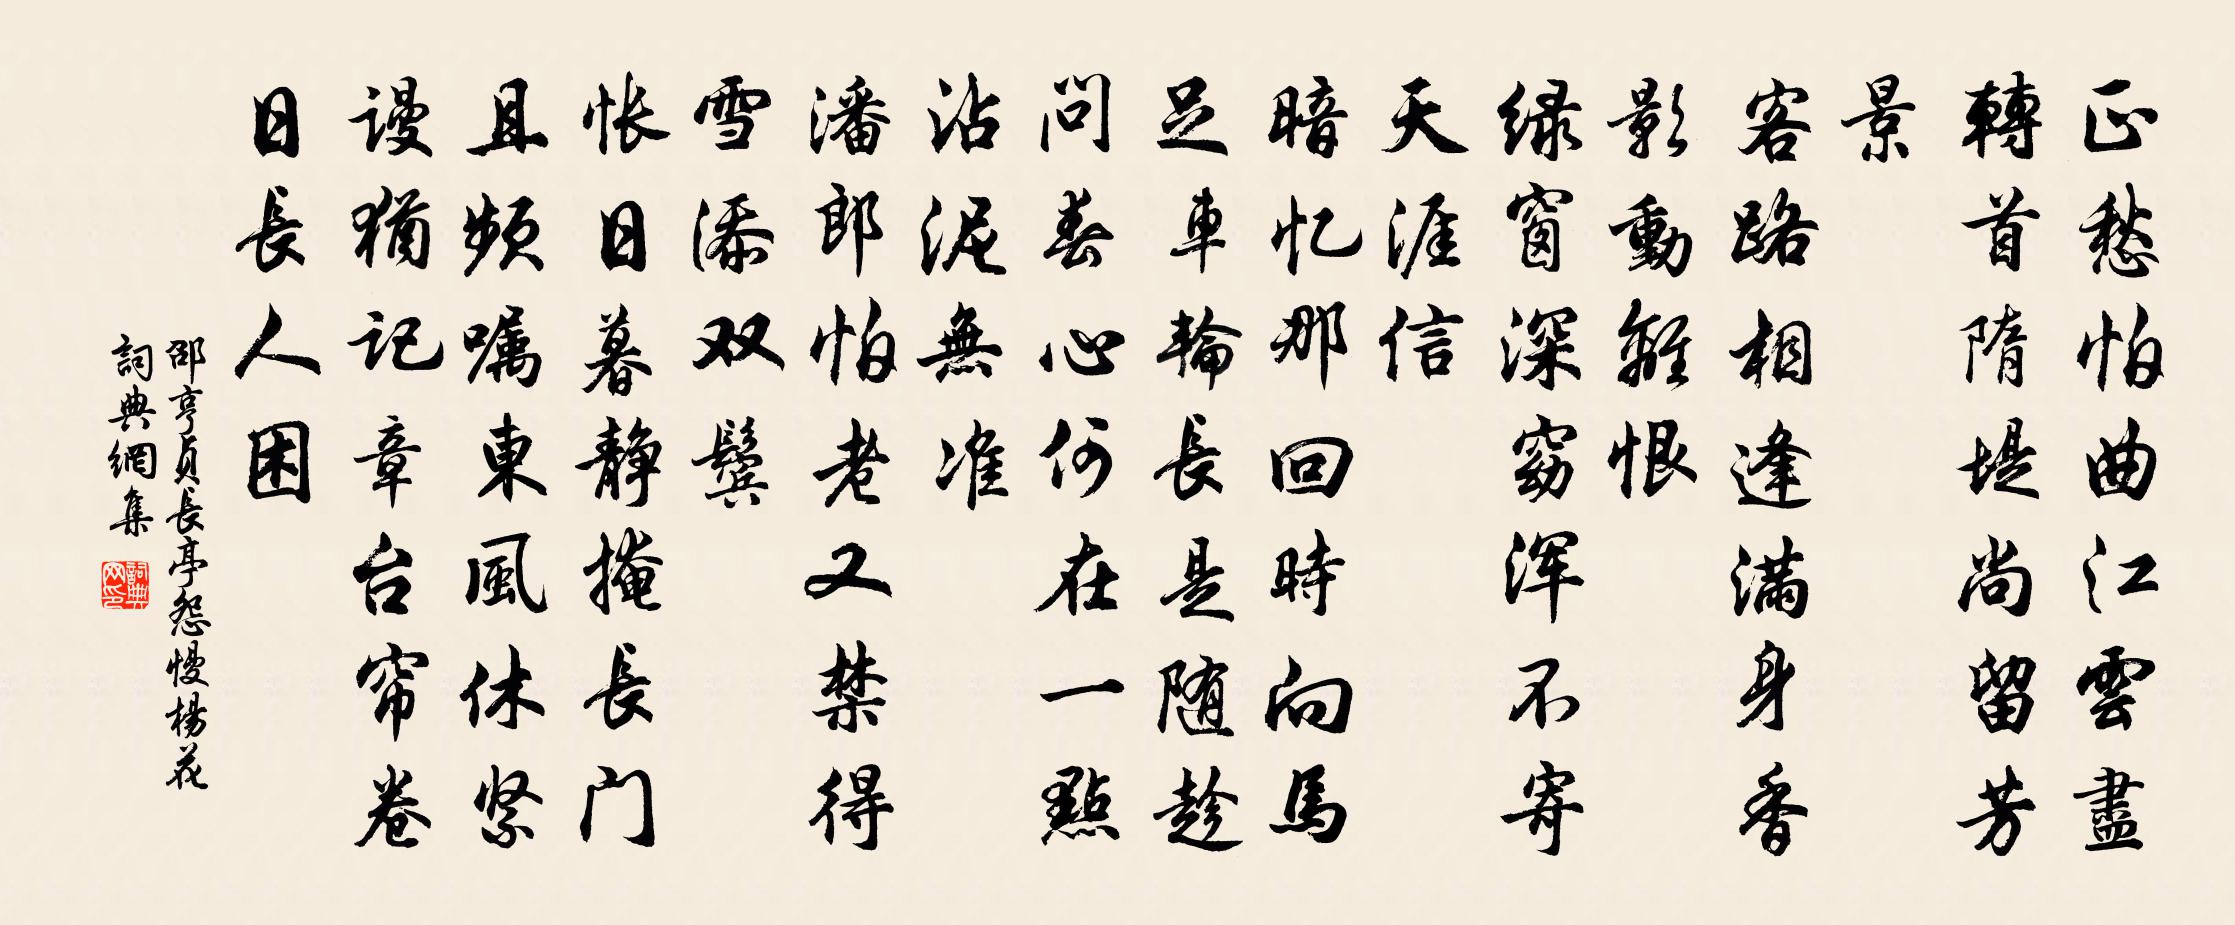 正愁怕曲江雲盡
轉首隋堤尚留芳
景
客路相逢滿身香
影動離恨
绿窗深窈浑不寄
天涯信
暗忆那回時向馬
足車輪長是随趁
問春心何在一點
沾泥無准
潘郎怕老又禁得
雪添双鬓
怅日暮静掩長门
且頻嘱東風休紧
谩犹记章台帘卷
日長人困
邵亨貞長亭怨慢楊花
詞典網集
詞典网印